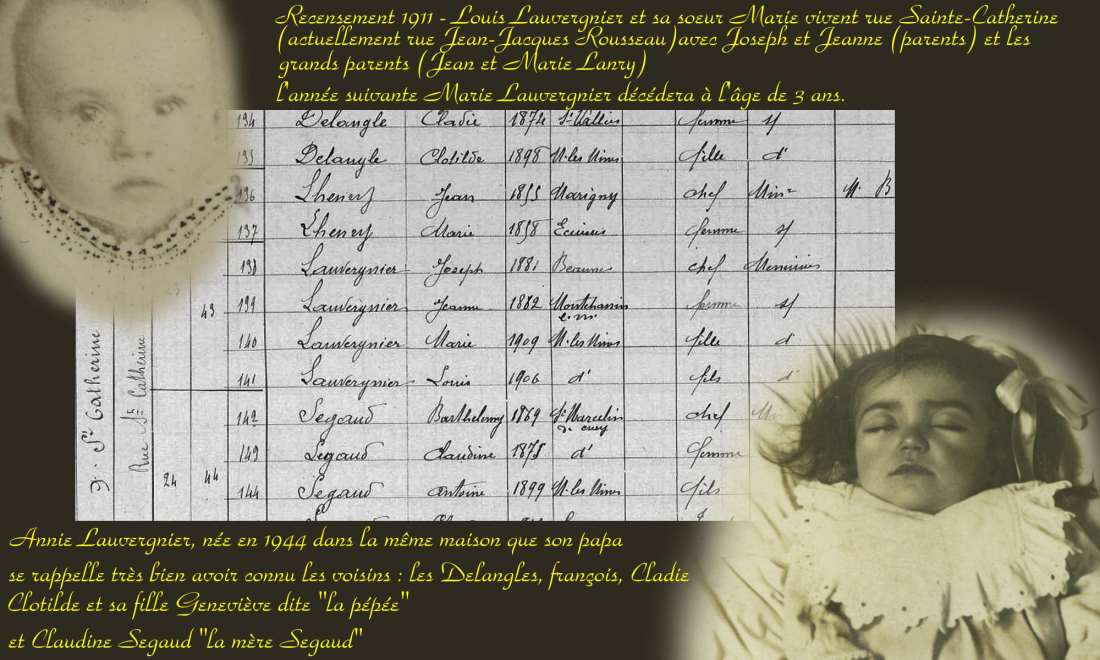 Recensement 1911 - Louis Lauvergnier et sa soeur Marie vivent rue Sainte-Catherine
(actuellement rue Jean-Jacques Rousseau)avec Joseph et Jeanne (parents) et les
grands parents (Jean et Marie Lanry)
l'année suivante Marie Lauvergnier décédera à l'âge de 3 ans.
134 Delangle Cladie 1874 St Vallier femme sp
135 Delangle Clotilde 1898 M-les Mines fille d°
136 Lhenry Jean 1855 Marigny chef Minr M. B
137 Lhenry Marie 1858 Ecuisses femme sp
138 Lauvergnier Joseph 1881 Beaune chef Menuisier
43 139 Lauvergnier Jeanne 1882 Montchanin l. m. femme sp
140 Lauvergnier Marie 1909 M-les Mines fille d°
141 Lauvergnier Louis 1906 d° fils d°
142 Segaud Barthelemy 1869 St Marcelin de cray chef
143 Segaud Claudine 1875 d° femme
24 44 144 Segaud Antoine 1899 M-les Mines fils
St Catherine
Rue Ste Cathérine
Annie Lauvergnier, née en 1944 dans la même maison que son papa
se rappelle très bien avoir connu les voisins : les Delangles, françois, Cladie
Clotilde et sa fille Geneviève dite "la pépée"
et Claudine Segaud "la mère Segaud"